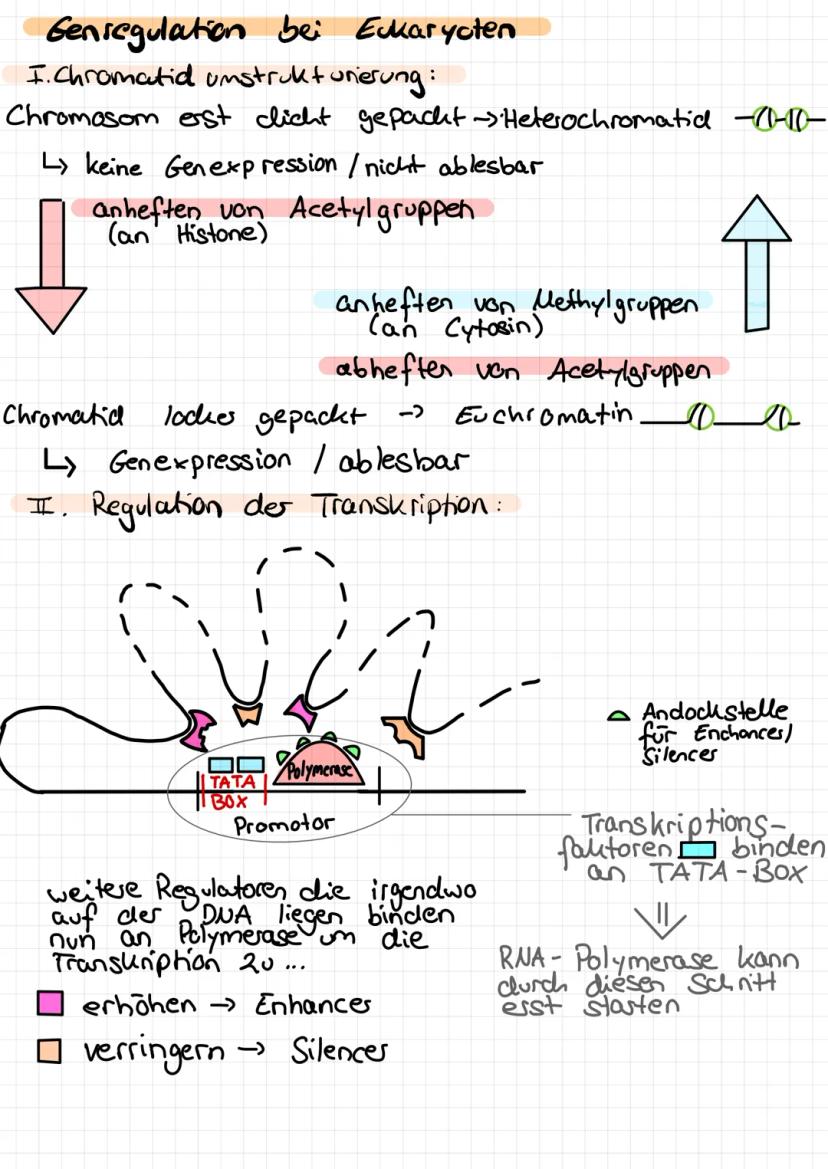 Genregulation bei Eukaryoten
I. Chromatid umstrukturierung:
Chromosom erst dicht gepackt → Heterochromatid
↳ keine Genexpression / nicht ablesbar
anheften von Acetylgruppen
(an Histone)
anheften von Methylgruppen
(an Cytosin)
abheften von Acetylgruppen
Chromatid locker gepackt → Euchromatin
↳ Genexpression / ablesbar
II. Regulation der Transkription:
Andockstelle
für Enchancer/
Silencer
Polymerase
TATA
BOX
Promotor
Transkriptions-
faktoren binden
an TATA-Box
RNA-Polymerase kann
durch diesen Schritt
erst starten
weitere Regulatoren die irgendwo
auf der DNA liegen binden
nun an Polymerase um die
Transkription zu ...
erhöhen → Enhancer
verringern → Silencer